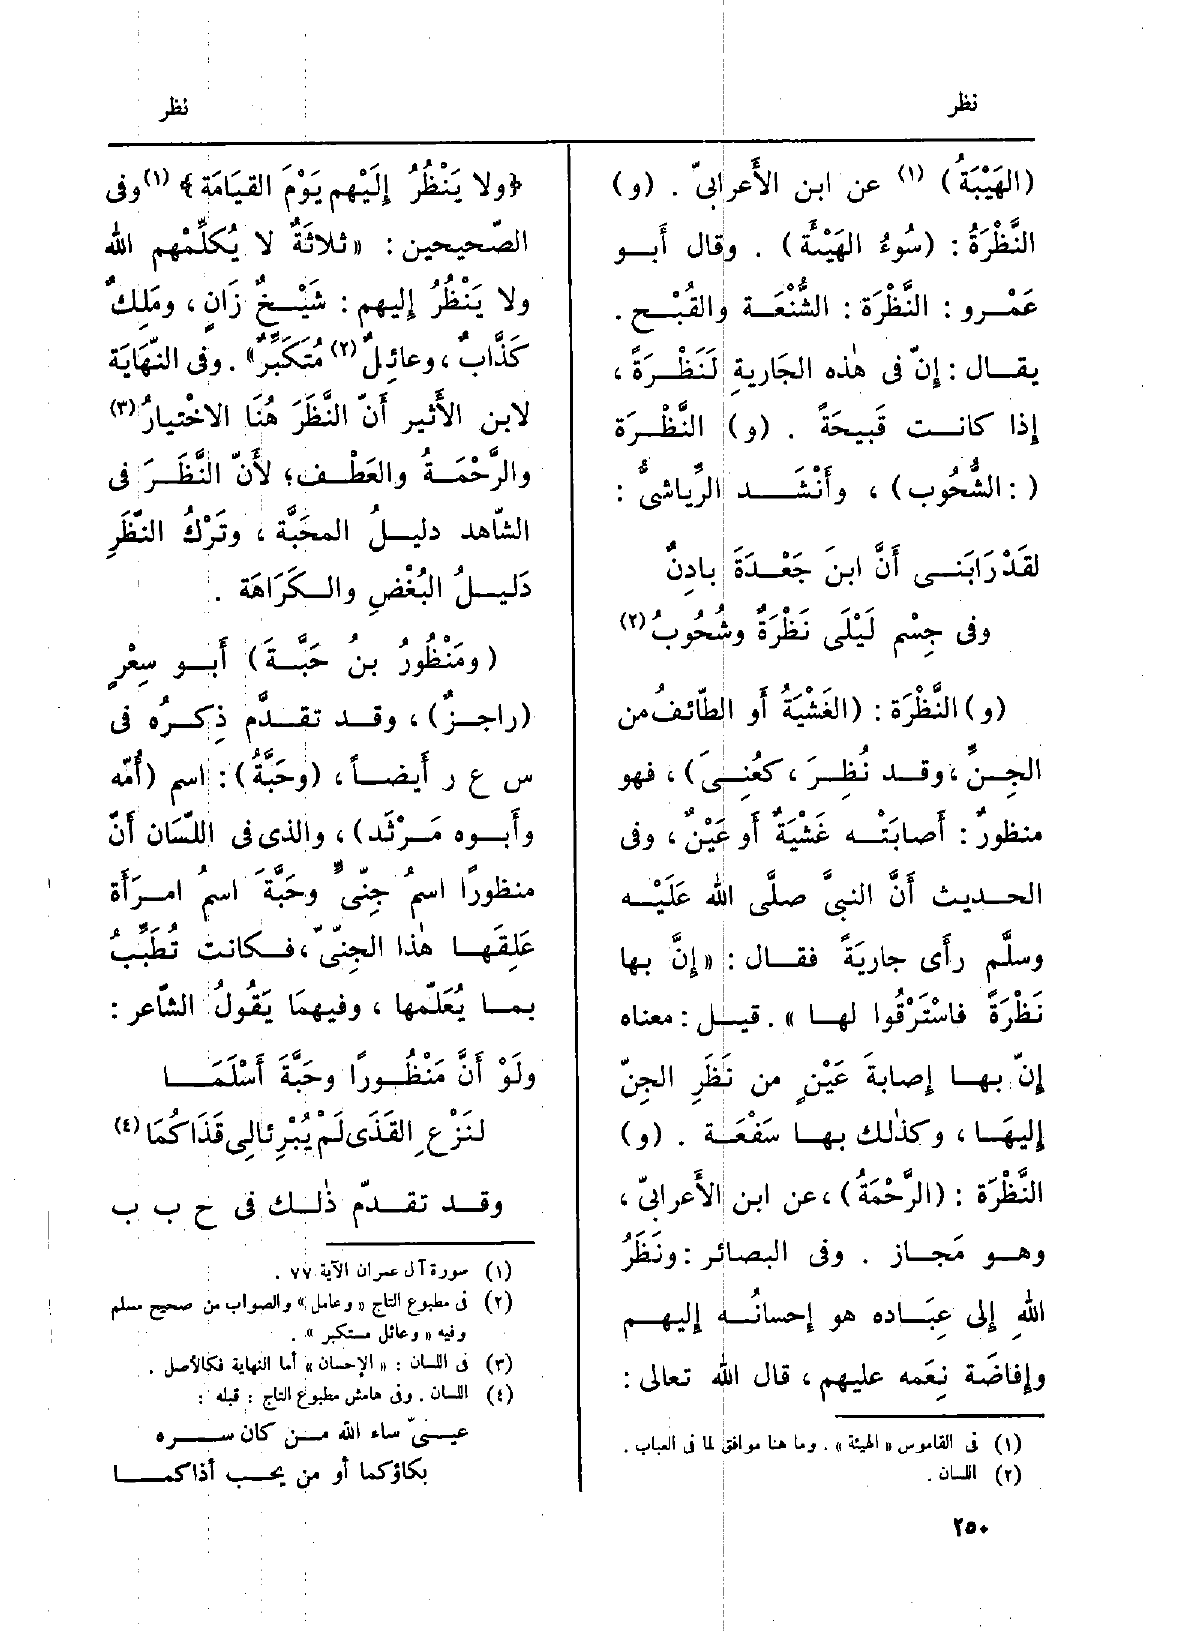 نظر
(الهَيْبَةُ) (١) عن ابن الأَعرابىّ . (و)
النَّظْرَةُ : (سُوءُ الهَيْئَةُ) . وقال أَبو
عَمْرو : النَّظْرَة : الشُّنْعَة والقُبْح .
يقال : إنّ فى هٰذه الجَارية لَنَظْرَةً ،
إذا كانت قَبِيحَةً . (و) النَّظْرَة
( : الشُّحُوب) ، وأَنْشَد الرِّياشىُّ :
لقَدْ رَابَنى أَنَّ ابنَ جَعْدَةَ بادِنٌ
وفى جِسْم لَيْلَى نَظْرَةٌ وشُحُوبُ (٢)
(و) النَّظْرَة : (الغَشْيَةُ أَو الطّائفُ من
الجِنِّ ، وقد نُظِرَ ، كعُنِىَ) ، فهو
منظورٌ : أَصابَتْه غَشْيَةٌ أَو عَيْنٌ ، وفى
الحديث أَنَّ النبىَّ صلَّى اللّٰه عَلَيْه
وسلَّم رأَى جاريَةً فقال : «إنَّ بها
نَظْرَةً فاسْتَرْقُوا لها » . قيل : معناه
إنّ بها إصابةَ عَيْنٍ من نَظَرِ الجنّ
إليهَا ، وكذٰلك بها سَفْعَة . (و)
النَّظْرَة : (الرَّحْمَةُ) ، عن ابن الأَعرابىّ ،
وهو مَجاز . وفى البصائر : ونَظَرُ
اللّٰهِ إلى عِبَاده هو إحسانُه إليهم
وإفاضَة نِعَمه عليهم ، قال اللّٰه تعالى :
(١) فى القاموس « الهيئة » . وما هنا موافق لما فى العباب .
(٢) اللسان .
٢٥٠
نظر
﴿ولا يَنْظُرُ إلَيْهم يَوْمَ القيَامَة﴾ (١) وفى
الصّحيحين : «ثلاثَةٌ لا يُكلِّمُهم اللّٰه
ولا يَنْظُرُ إليهم : شَيْخٌ زَانٍ ، ومَلِكٌ
كَذَّابٌ ، وعائِلٌ (٢) مُتَكَبِّرٌ» . وفى النّهَايَة
لابن الأَثير أَنّ النَّظَرَ هُنَا الاخْتيارُ (٣)
والرَّحْمَةُ والعَطْف ؛ لأَنّ النَّظَرَ فى
الشّاهد دليلُ المحَبَّة ، وتَرْكُ النَّظَرِ
دَليلُ البُغْضِ والكَرَاهَة .
(ومَنْظُورُ بنُ حَبَّةَ) أَبو سِعْرٍ
(راجزٌ) ، وقد تقدّم ذِكرُه فى
س ع ر أَيضاً ، (وحَبَّةُ) : اسم (أُمّه
وأَبوه مَرْثَد) ، والذى فى اللّسَان أَنّ
منظورًا اسمُ جِنِّىٍّ وحَبَّةَ اسمُ امرَأَة
عَلِقَها هٰذا الجِنِّىّ ، فكانت تُطَبِّبُ
بما يُعَلِّمها ، وفيهمَا يَقُولُ الشّاعر :
ولَوْ أَنَّ مَنْظُورًا وحَبَّةَ أَسْلَمَا
لنَزْع القَذَى لَمْ يُبْرئالى قَذَاكُمَا (٤)
وقد تقدّم ذٰلك فى ح ب ب
(١) سورة آل عمران الآية ٧٧ .
(٢) فى مطبوع التاج « وعامل » والصواب من صحيح مسلم
وفيه « وعائل مستكبر » .
(٣) فى اللسان : « الإحسان » أما النهاية فكالأصل .
(٤) اللسان . وفى هامش مطبوع التاج : قبله :
عينىّ ساء اللّٰه من كان سره
بكاؤكما أو من يحب أذاكما